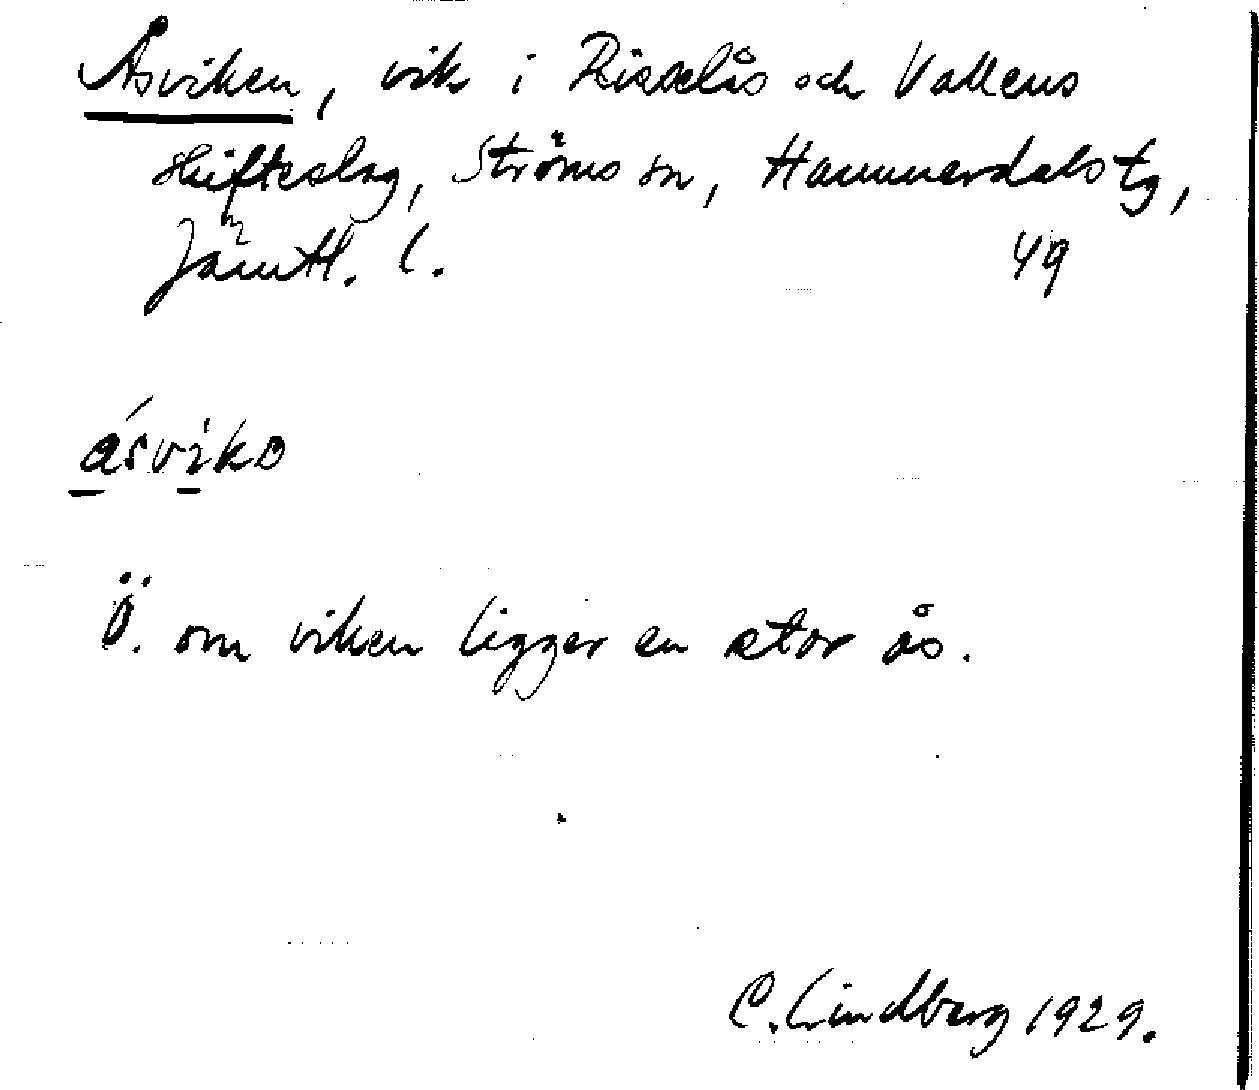 Åsviken, vik i Risselås och Vallens
skifteslag, Ströms sn, Hammerdals tg,
Jämtl. l. 49
ásvikɷ
Ö. om viken ligger en stor ås.
C. Lindberg 1929.